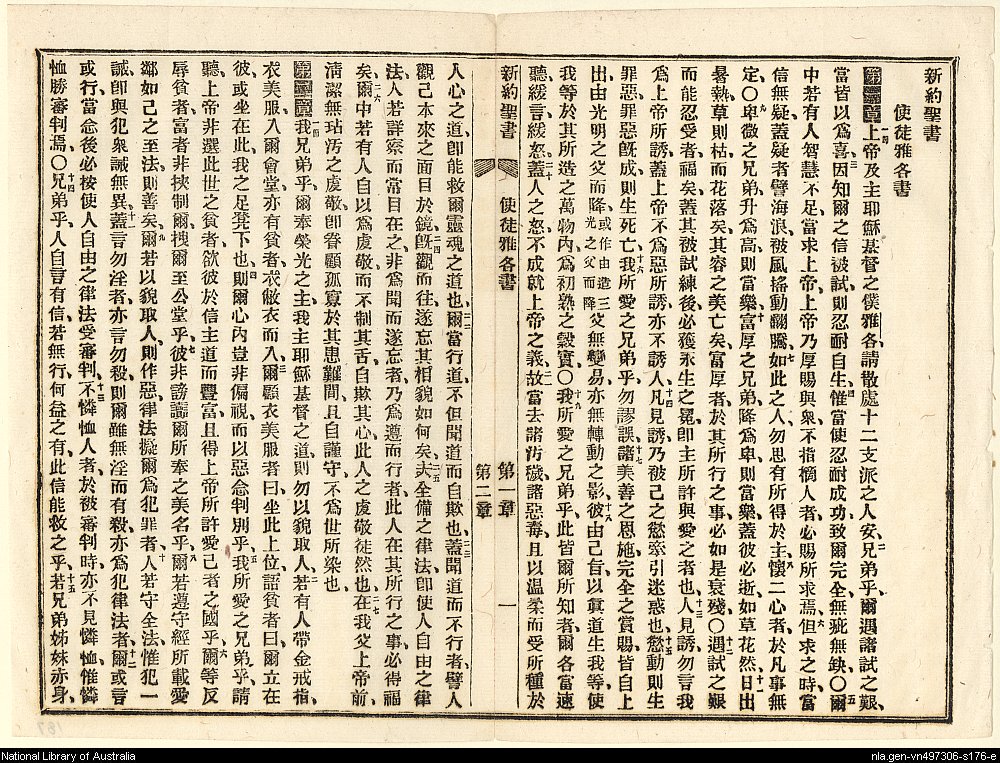 新約聖書
使徒雅各書
第一章一上帝及主耶穌基督之僕雅各請散處十二支派之人安、二兄弟乎爾遇諸試之艱
當皆以爲喜、三因知爾之信被試則忍耐自生、四惟當使忍耐成功致爾完全無疵無缺〇五爾
中若有人智慧不足當求上帝上帝乃厚賜與衆不指摘人者必賜所求焉、六但求之時當
信無疑蓋疑者譬海浪被風搖動翻騰、七如此之人勿思有所得於主、八懷二心者於凡事無
定〇九卑微之兄弟升爲高則當樂、十富厚之兄弟降爲卑則當樂蓋彼必逝如草花然、十一日出
暑熱草則枯而花落矣其容之美亡矣富厚者於其所行之事必如是衰殘〇十二遇試之艱
而能忍受者福矣蓋其被試練後必獲永生之冕卽主所許與愛之者也、十三人見誘勿言我
爲上帝所誘蓋上帝不爲惡所誘亦不誘人、十四凡見誘乃被己之慾牽引迷惑也、十五慾動則生
罪惡罪惡旣成則生死亡、十六我所愛之兄弟乎勿謬誤、十七諸美善之恩施完全之賞賜皆自上
出由光明之父而降或作由造三光之父而降父無變易亦無轉動之影、十八彼由己旨以眞道生我等使
我等於其所造之萬物內爲初熟之穀實〇十九我所愛之兄弟乎此皆爾所知者爾各當速
聽緩言緩怒、二十蓋人之怒不成就上帝之義、故當去諸汚穢諸惡毒且以溫柔而受所種於
新約聖書
使徒雅各書
第一章
第二章
一
人心之道卽能救爾靈魂之道也、二二爾當行道不但聞道而自欺也、二三蓋聞道而不行者譬人
觀己本來之面目於鏡、二四旣觀而往遂忘其相貌如何矣、二五夫全備之律法卽使人自由之律
法人若詳察而常目在之非爲聞而遂忘者乃爲遵而行者此人在其所行之事必得福
矣、二六爾中若有人自以爲虔敬而不制其舌自欺其心此人之虔敬徒然也、二七在我父上帝前
清潔無玷汚之虔敬卽眷顧孤寡於其患難間且自謹守不爲世所染也
第二章一我兄弟乎爾奉榮光之主我主耶穌基督之道則勿以貌取人、二若有人帶金戒指
衣美服入爾會堂亦有貧者衣敝衣而入、三爾顧衣美服者曰坐此上位語貧者曰爾立在
彼或坐在此我之足凳下也、四則爾心內豈非偏視而以惡念判別乎、五我所愛之兄弟乎請
聽上帝非選此世之貧者欲彼於信主道而豐富且得上帝所許愛己者之國乎、六爾等反
辱貧者富者非挾制爾拽爾至公堂乎、七彼非謗讟爾所奉之美名乎、八爾若遵守經所載愛
鄰如己之至法則善矣、九爾若以貌取人則作惡律法擬爾爲犯罪者、十人若守全法惟犯一
誡卽與犯衆誡無異、十一蓋言勿淫者亦言勿殺則爾雖無淫而有殺亦爲犯律法者、十二爾或言
或行當念後必按使人自由之律法受審判、十三不憐恤人者於被審判時亦不見憐恤惟憐
恤勝審判焉〇十四兄弟乎人自言有信若無行何益之有此信能救之乎、十五若兄弟姊妹赤身
National Library of Australia
nla.gen-vn497306-s176-e